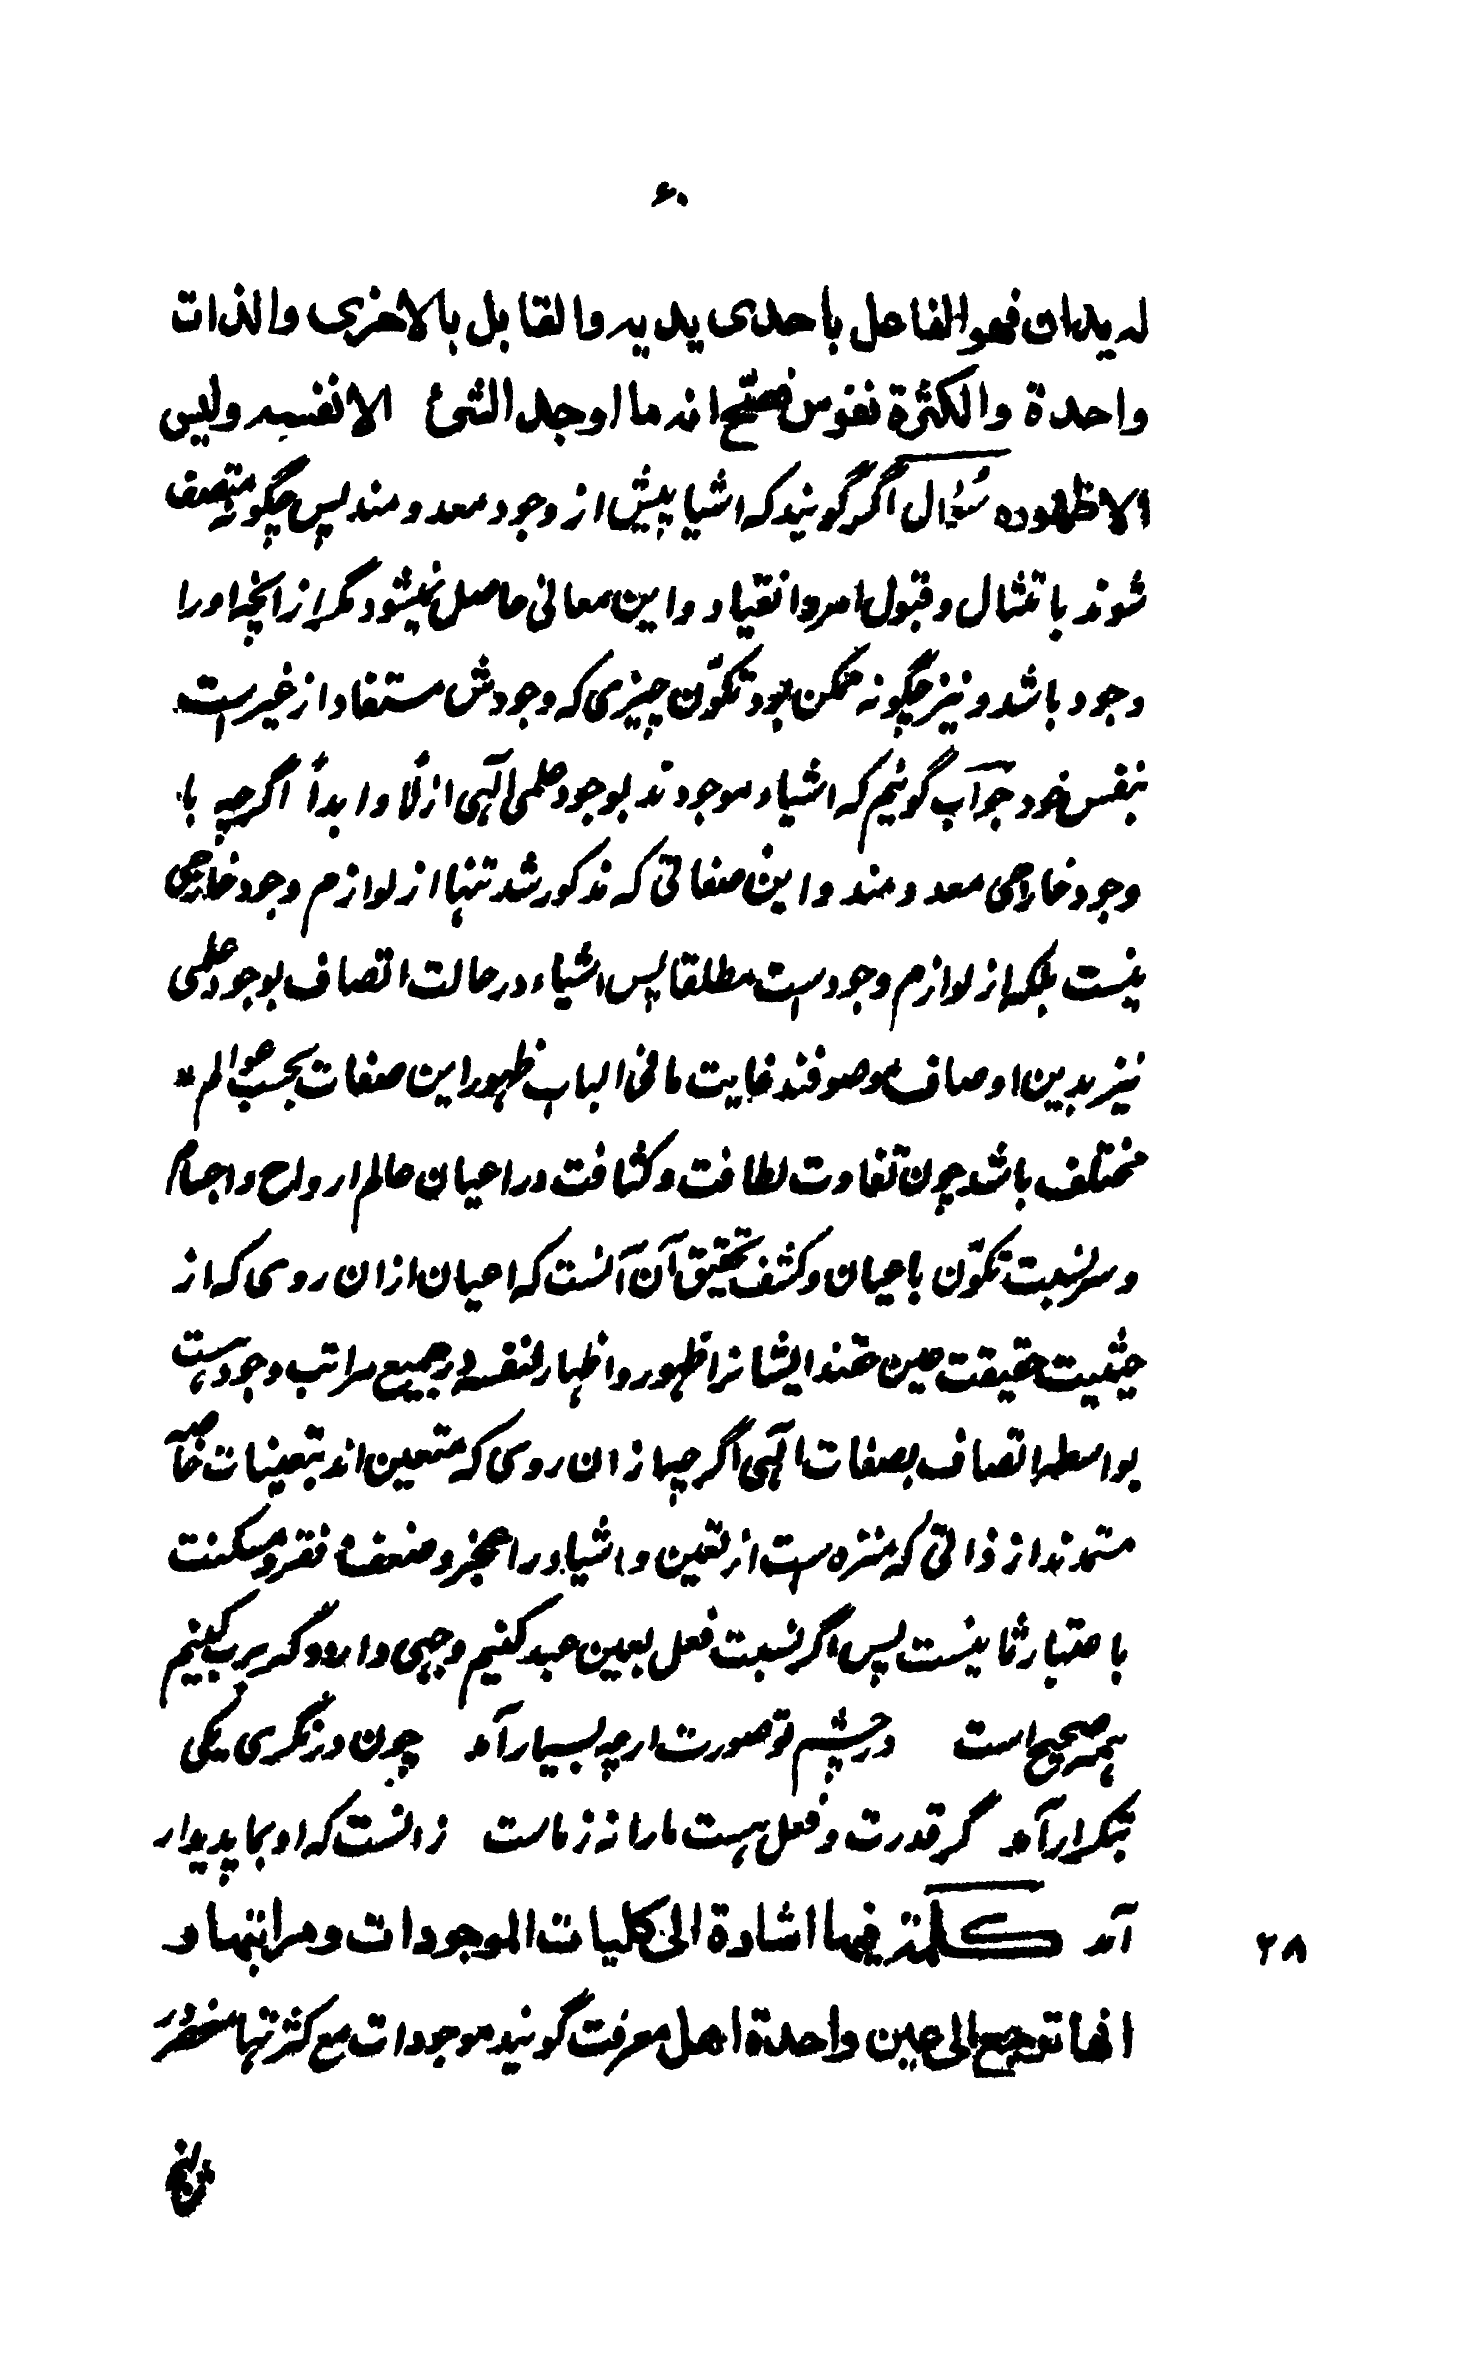 ۶۰
له يدان فهو الفاعل باحدى يديه والقابل بالاخرى والذات
واحدة والكثرة نقوش فصح انه ما اوجد الشئ الا نفسه وليس
الا ظهوره سؤال اگر گویند که اشیا پیش از وجود معدومند پس چگونه متصف
شوند بامتثال و قبول امر و انقیاد و این معانی حاصل نمیشود مگر از انچه او را
وجود باشد و نیز چگونه ممکن بود تکوّن چیزی که وجودش مستفاد از غیرست
بنفس خود جواب گوئیم که اشیاء موجودند بوجود علمی الٓهی ازلًا و ابدًا اگرچه با
وجود خارجی معدومند و این صفاتی که مذکور شد تنها از لوازم وجود خارجی
نیست بلکه از لوازم وجودست مطلقا پس اشیاء در حالت اتصاف بوجود علمی
نیز بدین اوصاف موصوفند غایت ما فی الباب ظهور این صفات بحسب عوالم *
مختلف باشد چون تفاوت لطافت و کثافت در اعیان عالم ارواح و اجسام
و سر نسبت تکوّن باعیان و کشف تحقیق آن آنست که اعیان ازان روی که از
حیثیت حقیقت عین حقند ایشانرا ظهور و اظهار لنفسه در جمیع مراتب وجودست
بواسطه اتصاف بصفات الٓهی اگرچه ازان روی که متعین اند بتعینات خاصّه
مستمدند از ذاتی که منزه ست از تعین و اشیاء را عجز و ضعف و فقر و مسکنت
باعتبار ثانیست پس اگر نسبت فعل بعین عبد کنیم وجهی دارد و گر برب کنیم
همه صحیح است در چشم تو صورت ارچه بسیار آمد چون درنگری یکی
بتکرار آمد گر قدرت و فعل هست ما را نه ز ماست زانست که او بما پدیدار
آمد كلمة فيها اشارة الى كليات الموجودات ومراتبها و
۲۸
انها ترجع الى عين واحدة اهل معرفت گویند موجودات مع کثرتها منحصر در
پنج